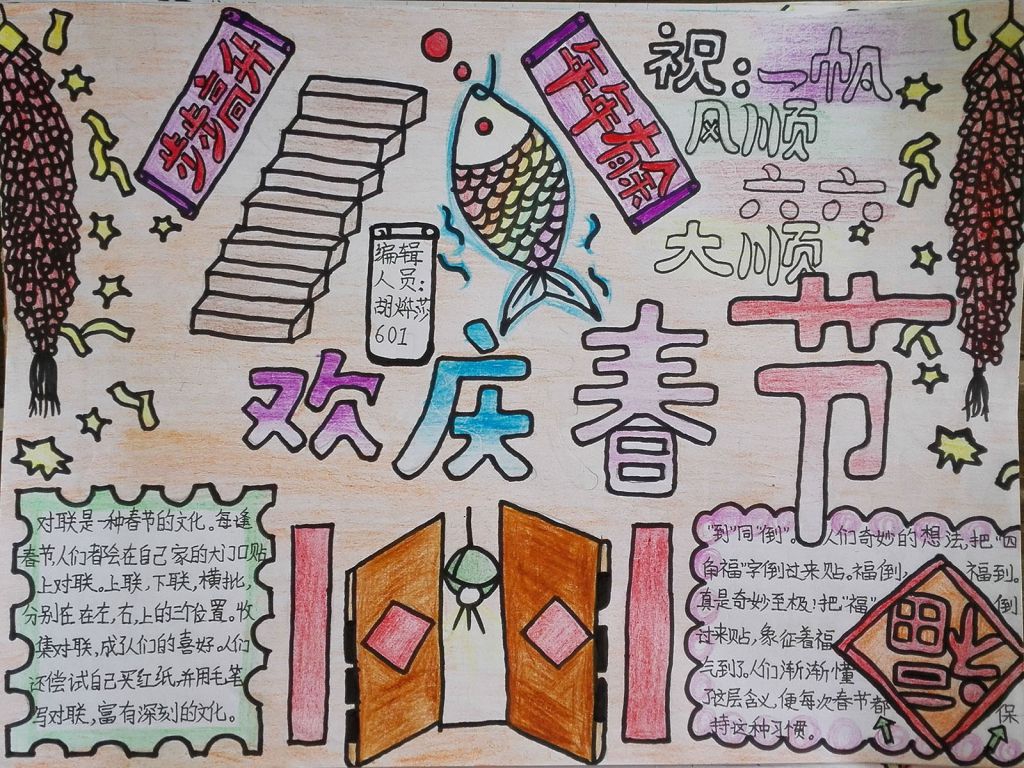 步步高升
年年有余
祝：一帆
风顺
六六
大顺
编辑
人员：
胡烨莎
601
欢庆春节
对联是一种春节的文化。每逢
春节人们都会在自己家的大门口贴
上对联。上联，下联，横批，
分别在在左，右，上的三个位置。收
集对联，成了人们的喜好。人们
还偿试自己买红纸，并用毛笔
写对联，富有深刻的文化。
"到"同"倒"。人们奇妙的想法，把"四
角福"字倒过来贴。福倒，福到。
真是奇妙至极！把"福"倒
过来贴，象征着福
气到了。人们渐渐懂
了这层含义，便每次春节都
保
持这种习惯。
福